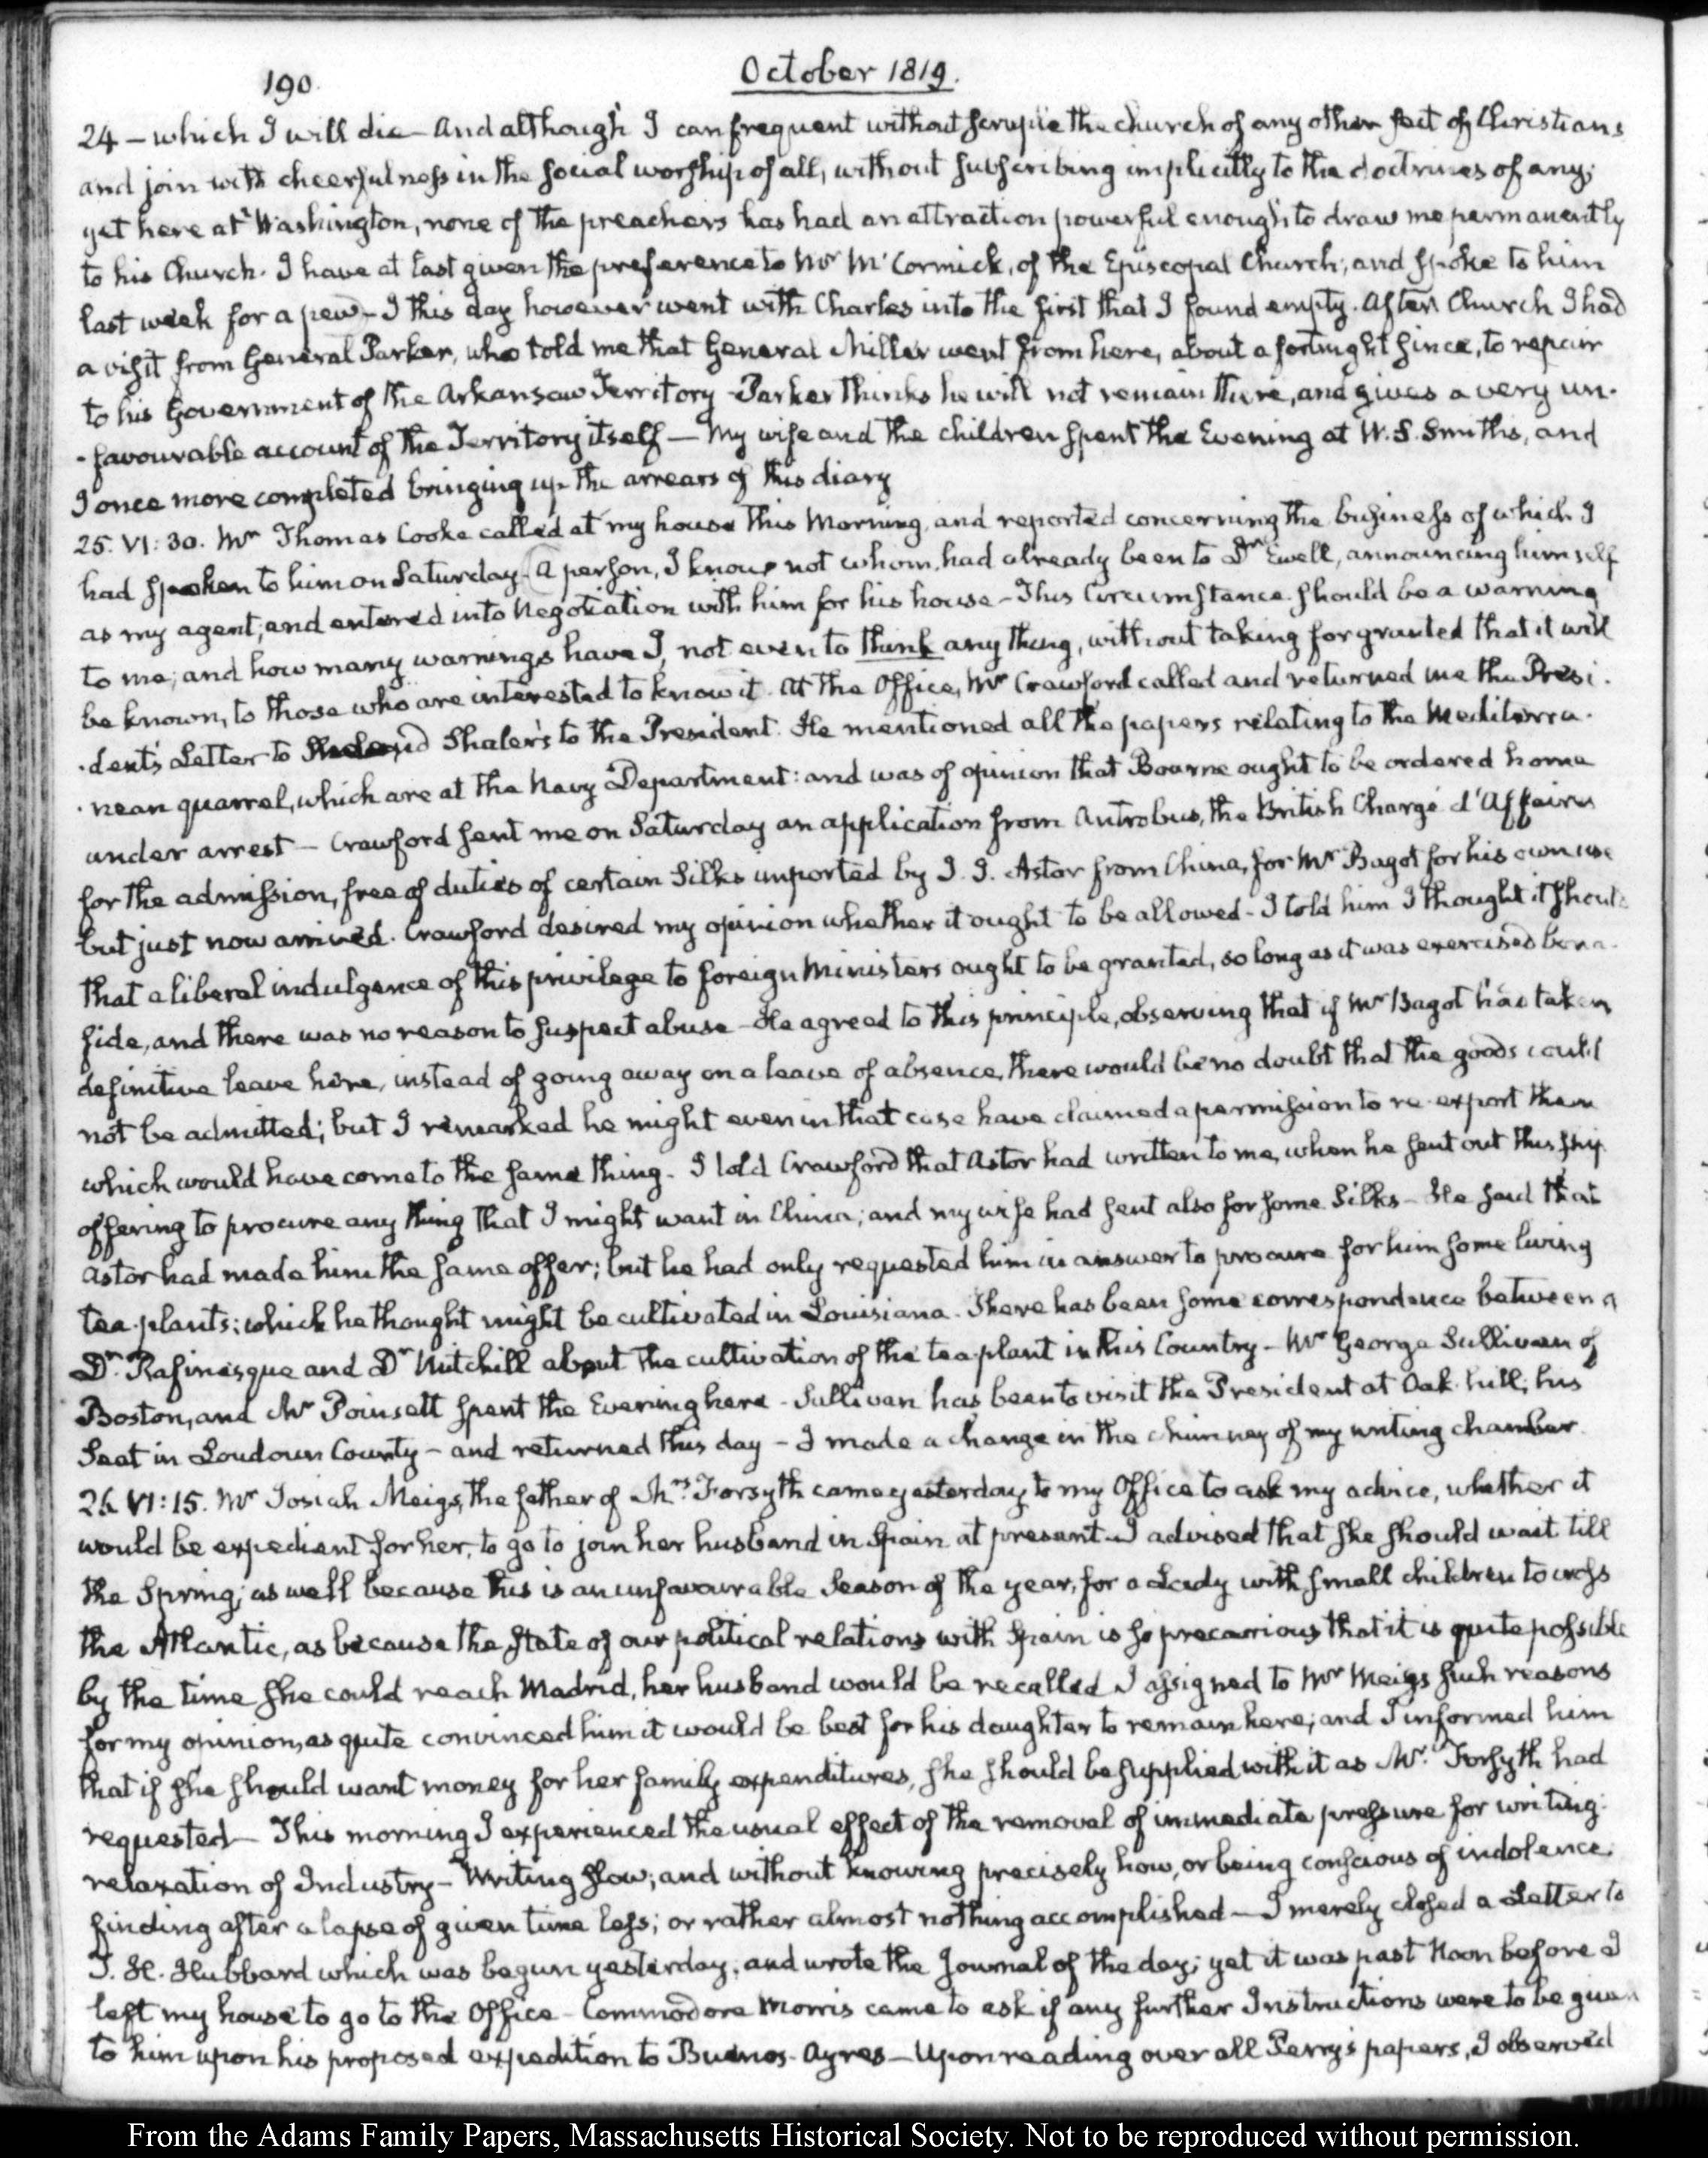 190.
October 1819.
24 – which I will die – And although I can frequent without scruple the church of any other sect of Christians
and join with cheerfulness in the social worship of all, without subscribing implicitly to the doctrines of any;
yet here at Washington, none of the preachers has had an attraction powerful enough to draw me permanently
to his Church. I have at last given the preference to Mr McCormick, of the Episcopal Church; and spoke to him
last week for a pew – I this day however went with Charles into the first that I found empty. After Church I had
a visit from General Parker, who told me that General Miller went from here, about a fortnight since, to repair
to his Government of the Arkansaw Territory – Parker thinks he will not remain there, and gives a very un-
-favourable account of the Territory itself — My wife and the children spent the Evening at W. S. Smith's, and
I once more completed bringing up the arrears of this diary
25. VI: 30. Mr Thomas Cooke called at my house this Morning, and reported concerning the business of which I
had spoken to him on Saturday. A person, I know not whom, had already been to Dr Ewell, announcing himself
as my agent, and entered into Negotiation with him for his house – This Circumstance should be a warning
to me; and how many warnings have I, not even to think any thing, without taking for granted that it will
be known, to those who are interested to know it. At the Office, Mr Crawford called and returned me the Presi-
-dent's Letter to and Shaler's to the President. He mentioned all the papers relating to the Mediterra-
-nean quarrel, which are at the Navy Department: and was of opinion that Bourne ought to be ordered home
under arrest – Crawford sent me on Saturday an application from Antrobus, the British Chargé d'Affaires
for the admission, free of duties of certain Silks imported by J. J. Astor from China, for Mr Bagot for his own use
but just now arrived. Crawford desired my opinion whether it ought to be allowed – I told him I thought it should
that a liberal indulgence of this privilege to foreign Ministers ought to be granted, so long as it was exercised bona-
fide, and there was no reason to suspect abuse – He agreed to this principle, observing that if Mr Bagot had taken
definitive leave here, instead of going away on a leave of absence, there would be no doubt that the goods could
not be admitted; but I remarked he might even in that case have claimed a permission to re-export them
which would have come to the same thing. I told Crawford that Astor had written to me, when he sent out this ship
offering to procure any thing that I might want in China; and my wife had sent also for some Silks – He said that
Astor had made him the same offer; but he had only requested him in answer to procure for him some living
tea-plants; which he thought might be cultivated in Louisiana. There has been some correspondence between a
Dr Rafinesque and Dr Mitchill about the cultivation of the tea-plant in this Country – Mr George Sullivan of
Boston, and Mr Poinsett spent the Evening here – Sullivan has been to visit the President at Oak-hill; his
Seat in Loudoun County – and returned this day – I made a change in the chimney of my writing chamber.
26. VI: 15. Mr Josiah Meigs, the father of Mrs Forsyth came yesterday to my Office to ask my advice, whether it
would be expedient for her, to go to join her husband in Spain at present – I advised that she should wait till
the Spring; as well because this is an unfavourable Season of the year, for a Lady with small children to cross
the Atlantic, as because the state of our political relations with Spain is so precarious that it is quite possible
by the time she could reach Madrid, her husband would be recalled. I assigned to Mr Meigs such reasons
for my opinion, as quite convinced him it would be best for his daughter to remain here; and I informed him
that if she should want money for her family expenditures, she should be supplied with it as Mr. Forsyth had
requested – This morning I experienced the usual effect of the removal of immediate pressure for writing.
relaxation of Industry – Writing slow; and without knowing precisely how, or being conscious of indolence
finding after a lapse of given time less; or rather almost nothing accomplished — I merely closed a Letter to
J. H. Hubbard which was begun yesterday, and wrote the Journal of the day; yet it was past Noon before I
left my house to go to the Office – Commodore Morris came to ask if any further Instructions were to be given
to him upon his proposed expedition to Buenos-Ayres – Upon reading over all Perry's papers, I observed
From the Adams Family Papers, Massachusetts Historical Society. Not to be reproduced without permission.